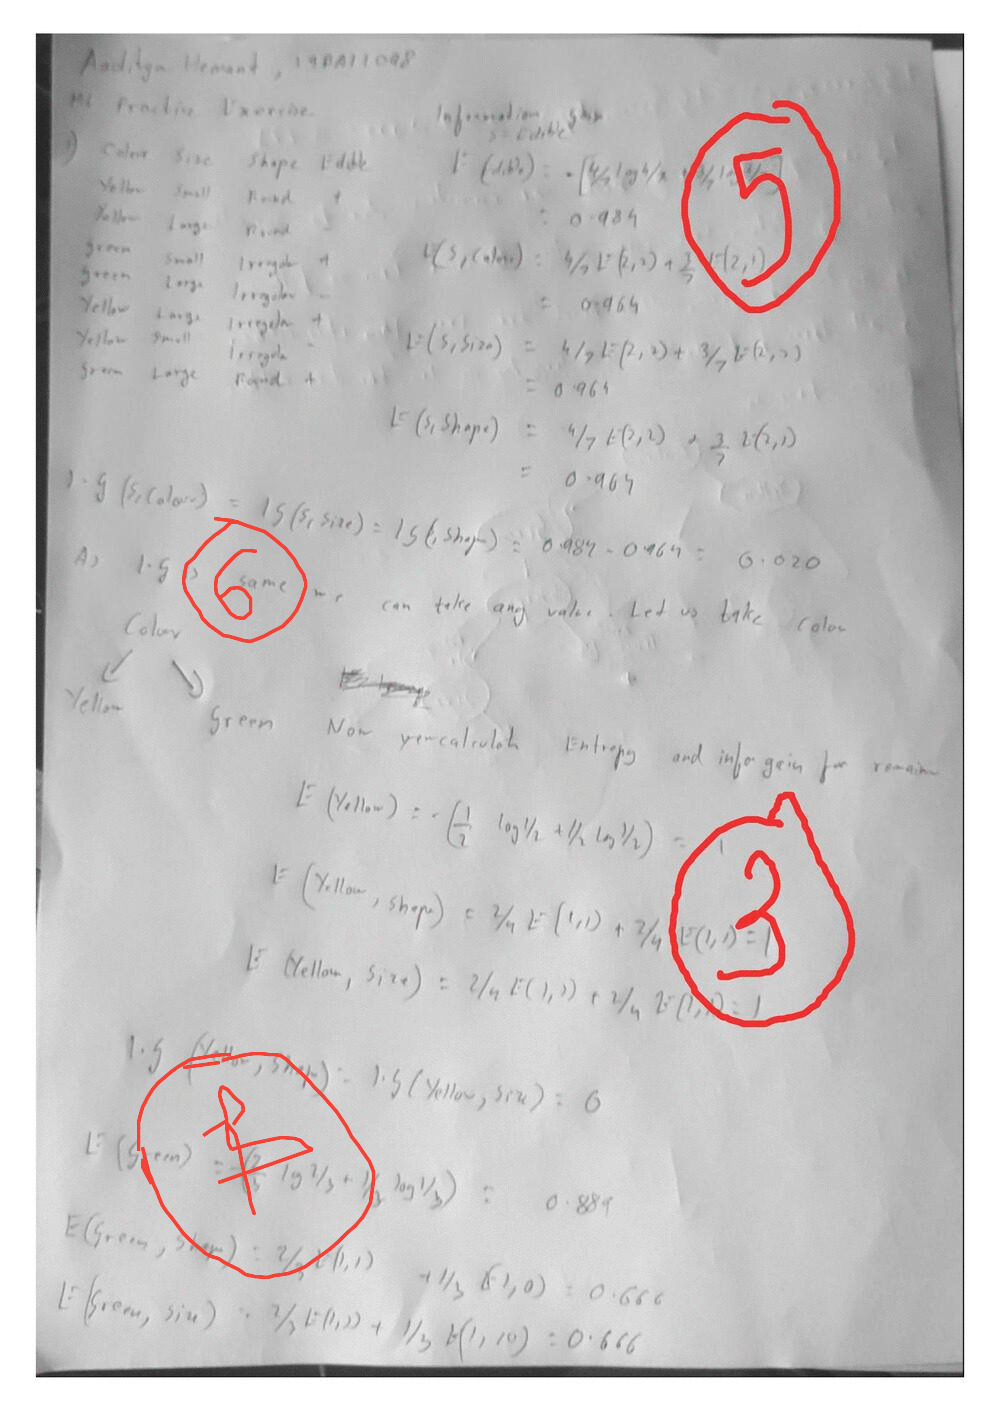 Aaditya Hemant,
ML Practice Exercise
Information Gain
S = Edible
1) Colour Size Shape Edible
Yellow Small Round +
Yellow Large Round -
green Small Irregular +
green Large Irregular -
Yellow Large Irregular +
Yellow Small Irregular -
Green Large Round +
= 0.984
E(S, Colour) = 4/7 E(2,2) + 3/7 E(2,1)
= 0.964
E(S, Size) = 4/7 E(2,2) + 3/7 E(2,1)
= 0.964
E(S, Shape) = 4/7 E(2,2) + 3/7 E(2,1)
= 0.964
I.G (S, Colour) = IG(S, Size) = IG(S, Shape) = 0.984 - 0.964 = 0.020
As I.G is same we can take any value. Let us take colour
Colour
Yellow
Green Now Entropy and info gain for
E (Yellow) = -(1/2 log 1/2 + 1/2 log 1/2) = 1
E (Yellow, shape) = 2/4 E(1,1) + 2/4 E(1,1) = 1
E (Yellow, Size) = 2/4 E(1,1) + 2/4 E(1,1) = 1
I.G (Yellow, Shape) = I.G (Yellow, Size) = 0
E (Green) = -(2/3 log 2/3 + 1/3 log 1/3) =
E(Green, shape) = 2/3 E(1,1) + 1/3 E(1,0) = 0.666
E(Green, Size) = 2/3 E(1,1) + 1/3 E(1,10) = 0.666
5
6
3